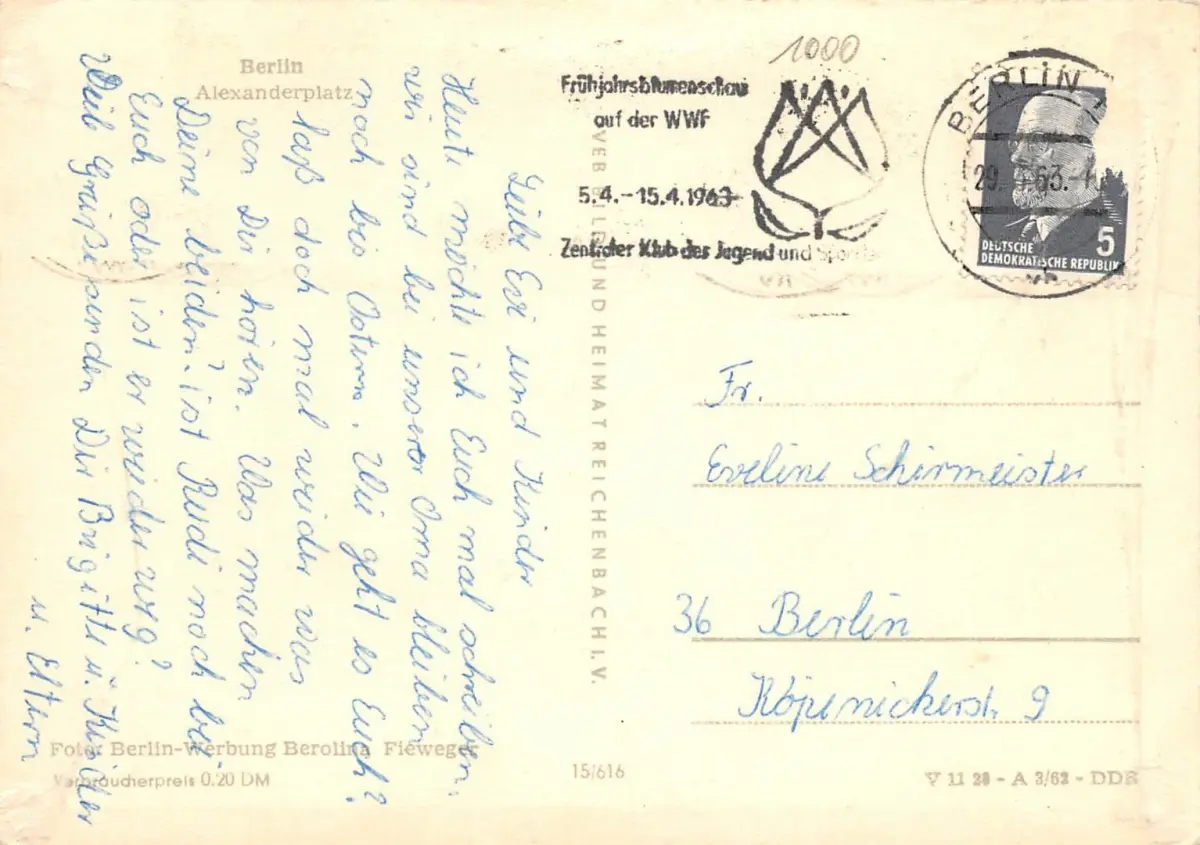 Berlin
Alexanderplatz
1000
Frühjahrsblumenschau
auf der WWF
5.4.-15.4.1963
Zentraler Klub der Jugend und Sportler
BERLIN
29. 63.
DEUTSCHE
DEMOKRATISCHE REPUBLIK
5
Liebe Evi und Kinder
Heute möchte ich Euch mal schreiben.
wir sind bei unserer Oma bleiben
noch bis Ostern. Wie geht es Euch?
laß doch mal wieder was
von Dir hören. Was machen
Deine beiden? ist Rudi noch bei
Euch oder ist er wieder weg?
Viele Grüße senden Dir Brigitte u. Kinder
u. Eltern
VEB BILD UND HEIMAT REICHENBACH I.V.
Fr.
Eveline Schirmeister
36 Berlin
Köpenickerstr. 9
Foto: Berlin-Werbung Berolina Fieweger
Verbraucherpreis 0.20 DM
15/616
V 11 28 - A 3/62 - DDR